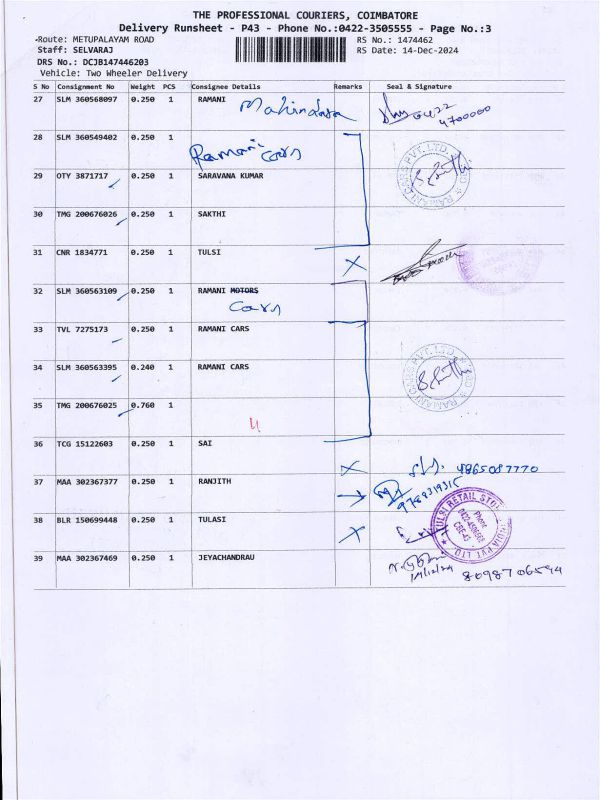 THE PROFESSIONAL COURIERS, COIMBATORE
Delivery Runsheet - P43 - Phone No.:0422-3505555 - Page No.:3
Route: METUPALAYAM ROAD RS No.: 1474462
Staff: SELVARAJ RS Date: 14-Dec-2024
DRS No.: DCJB147446203
Vehicle: Two Wheeler Delivery
S No Consignment No Weight PCS Consignee Details Remarks Seal & Signature
27 SLM 360568097 0.250 1 RAMANI Mahindara 0422
4700000
28 SLM 360549402 0.250 1
Ramani Cars
29 OTY 3871717 0.250 1 SARAVANA KUMAR
30 TMG 200676026 0.250 1 SAKTHI
31 CNR 1834771 0.250 1 TULSI
X
32 SLM 360563109 0.250 1 RAMANI MOTORS
Cars
33 TVL 7275173 0.250 1 RAMANI CARS
34 SLM 360563395 0.240 1 RAMANI CARS
35 TMG 200676025 0.760 1
36 TCG 15122603 0.250 1 SAI
X
37 MAA 302367377 0.250 1 RANJITH
38 BLR 150699448 0.250 1 TULASI
X
TULSI RETAIL
Phone
39 MAA 302367469 0.250 1 JEYACHANDRAU
14/12/24 8098706594